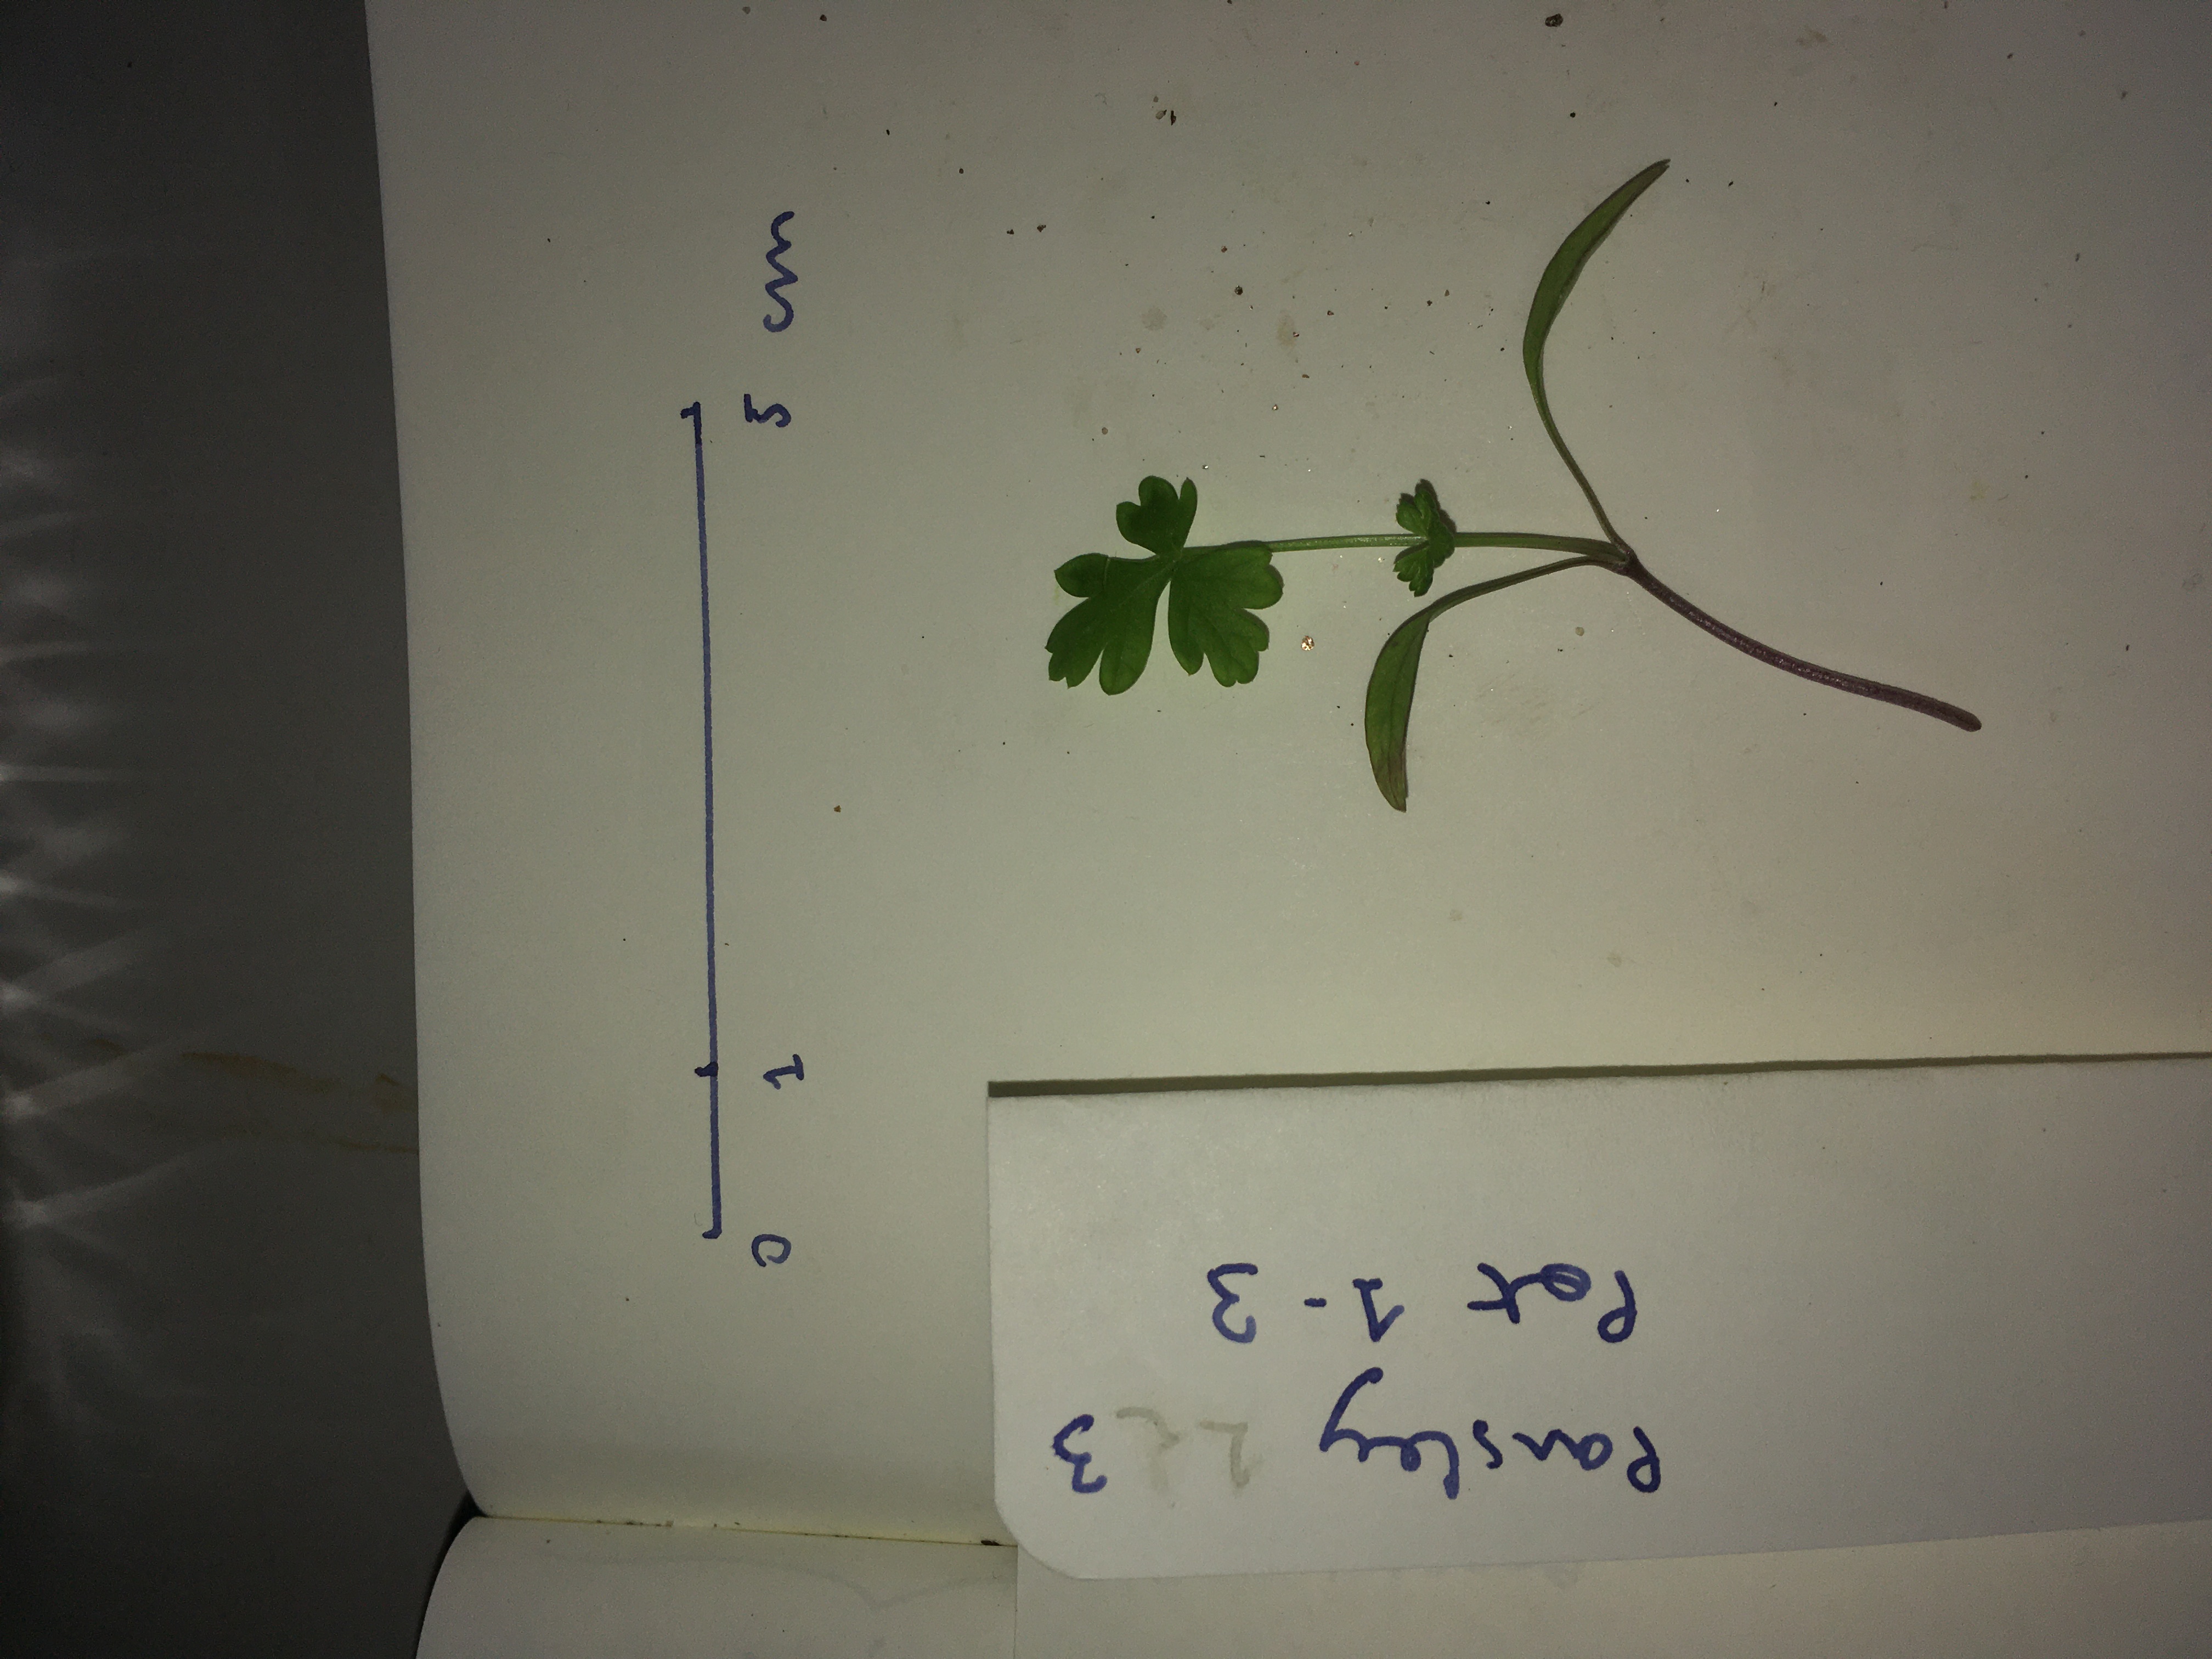 0 1 5 cm
Parsley 3
Pot 1-3